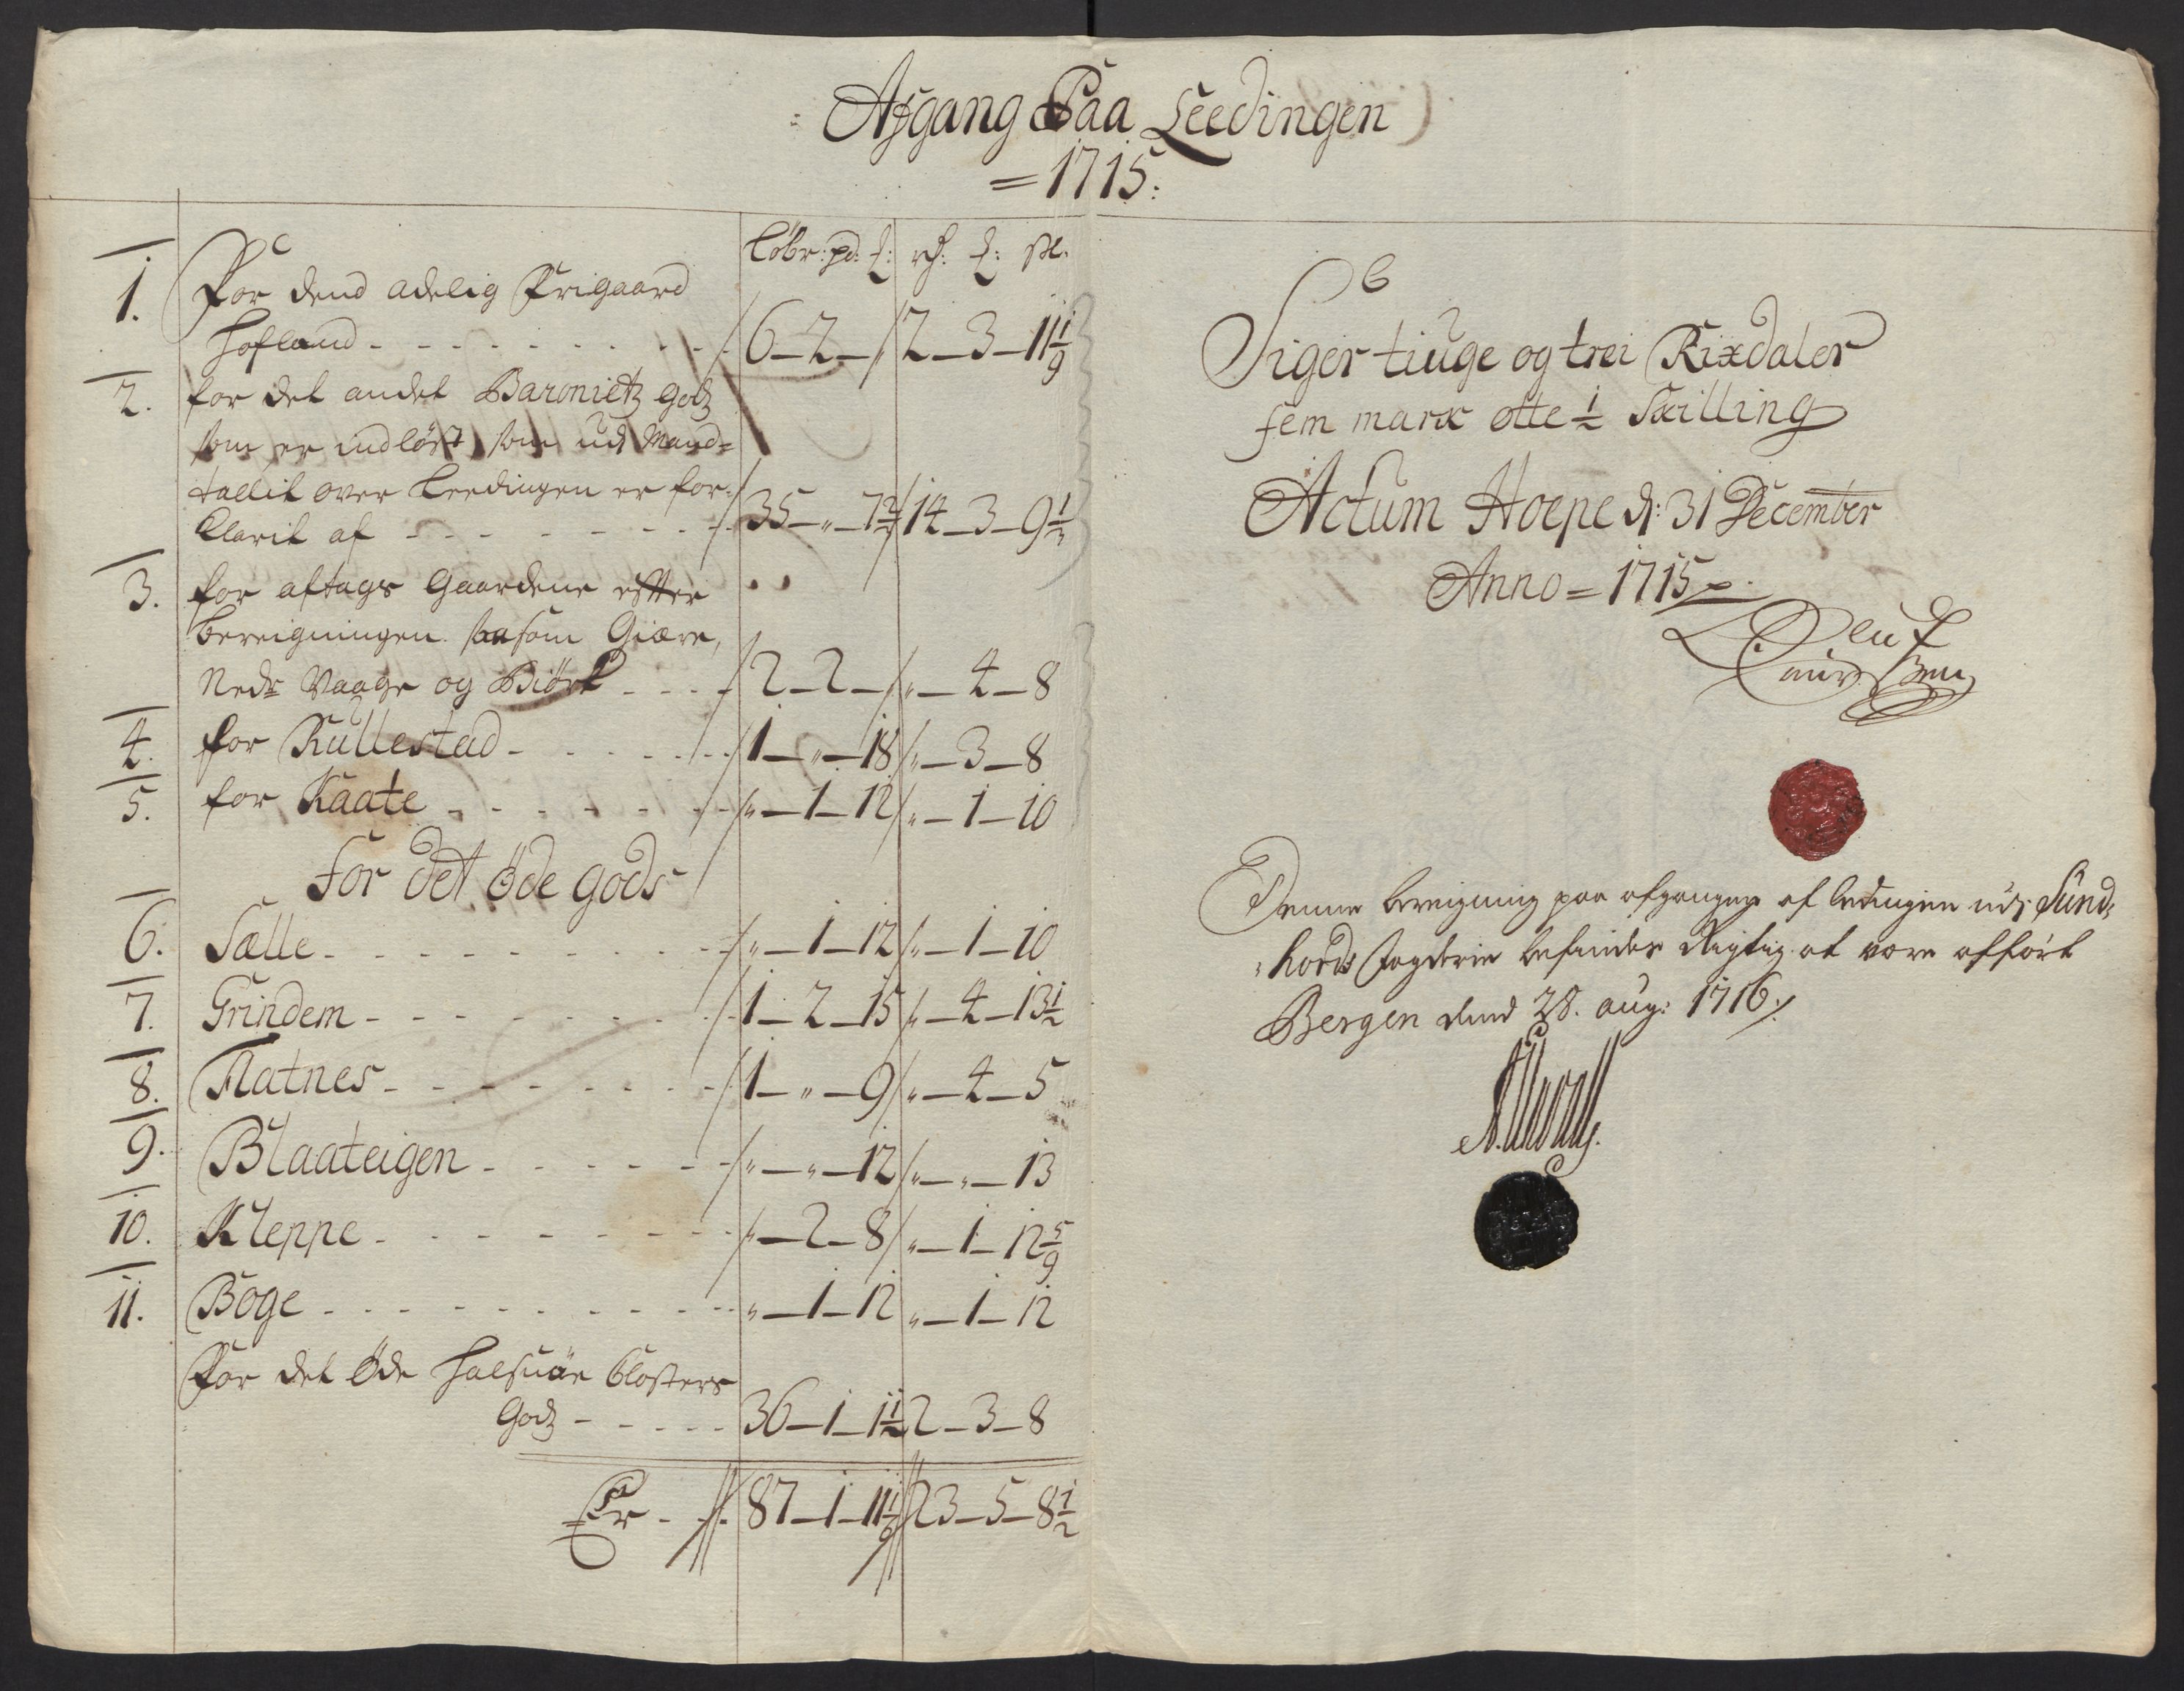 Afgang Paa Leedingen
= 1715:
Löbr: pd: ℔: rd: ℔: sk.
1. For dend adelig Frigaard
Hofland - - - 6 - 2 - " 2 - 3 - 11 1/9
2. for det andet Baronietz Godz
som er indlöst, som udj Mand=
tallit over Leedingen er for-
klarit af - - - 35 - " - 7 1/2 14 - 3 - 9 1/2
3. for aftags Gaardene efter
bereigningen saasom Giære,
Nedr Vaage og Biörk - - - 2 - 2 - " " - 4 - 8
4. for Rullestad - - - 1 - " - 18 " - 3 - 8
5. for Kaate - - - " - 1 - 12 " - 1 - 10
For det öde gods
6. Sælle - - - " - 1 - 12 " - 1 - 10
7. Grindem - - - 1 - 2 - 15 " - 4 - 13 1/2
8. Flatnes - - - 1 - " - 9 " - 4 - 5
9. Blaateigen - - - " - " - 12 " - " - 13
10. Kleppe - - - " - 2 - 8 " - 1 - 12 5/9
11. Boge - - - " - 1 - 12 " - 1 - 12
For det Öde Halsnöe Closters
Godz - - - 36 - 1 - 1 1/2 2 - 3 - 8
Er - - 87 - 1 - 11 1/6 23 - 5 - 8 1/2
Siger tiuge og trei Rixdaler
fem mark otte 1/2 Skilling
Actum Hoepe d: 31 December
Anno = 1715
Oluf
Laurs:
Denne bereigning paa afgangen af ledingen udj Sund=
hords fogderie befindes Rigtig at være afført
Bergen dend 28. aug: 1716